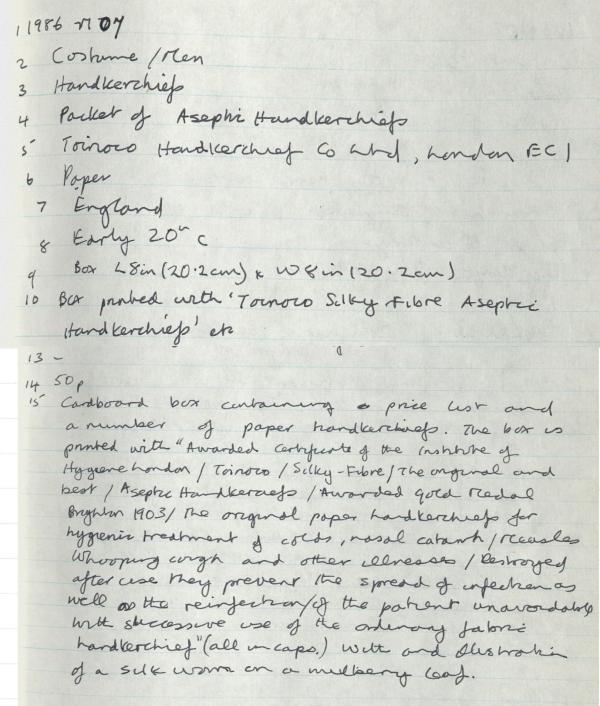 1 1986 M 07
2 Costume / Men
3 Handkerchiefs
4 Packet of Aseptic Handkerchiefs
5 Toinoco Handkerchief Co Ltd, London EC1
6 Paper
7 England
8 Early 20th C
9 Box L 8in (20.2cm) x W 8in (20.2cm)
10 Box printed with 'Toinoco Silky Fibre Aseptic
Handkerchiefs' etc
13 -
14 50p
15 Cardboard box containing a price list and
a number of paper handkerchiefs. The box is
printed with "Awarded Certificate of the Institute of
Hygiene London / Toinoco / Silky-Fibre / The original and
best / Aseptic Handkerchiefs / Awarded Gold Medal
Brighton 1903 / The original paper handkerchiefs for
hygienic treatment of colds, nasal catarrh / Measles
Whooping cough and other illnesses / Destroyed
after use they prevent the spread of infection as
well as the reinfection / of the patient unavoidable
with successive use of the ordinary fabric
handkerchief" (all in caps.) With and illustration
of a silk worm on a mulberry leaf.